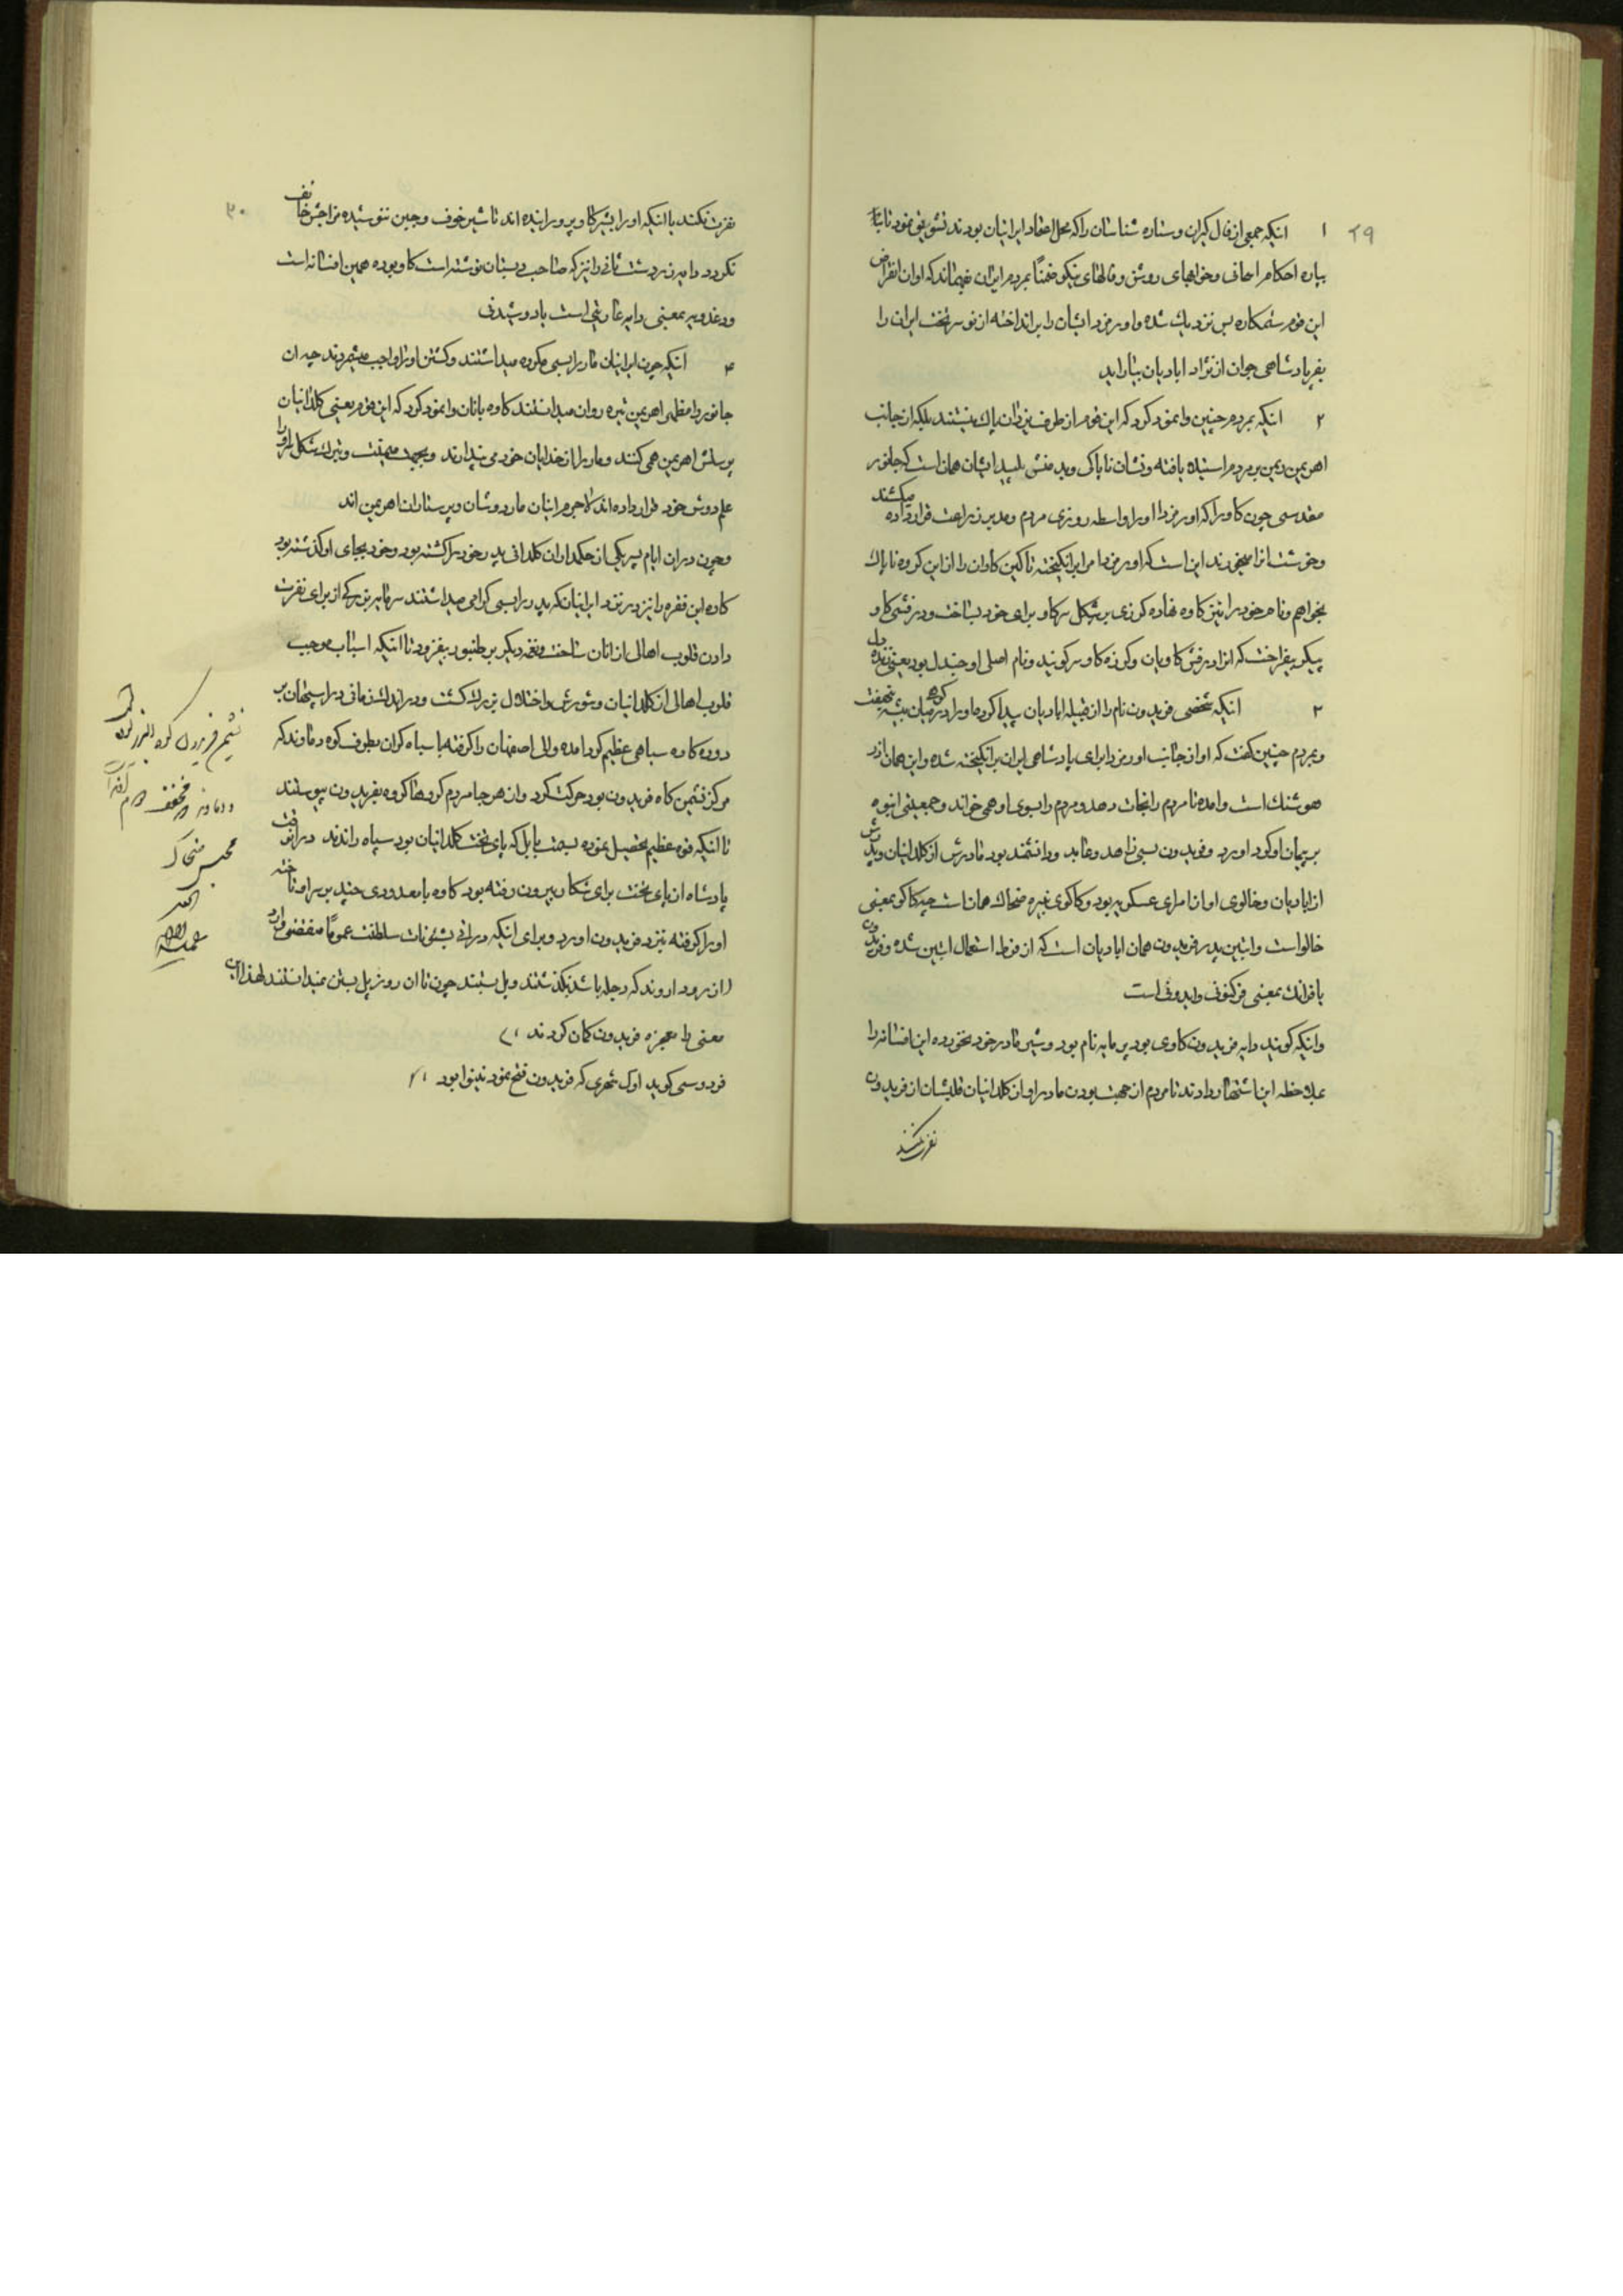 ۲۹
۱ انیکه جمعی از فال گیران و ستاره شناسان را که محل اعتقاد ایرانیان بودند تشویق نمود تا پاره
پاره احکام اسمانی و خوابهای روشن و فالهای نیکو ضمناً بمردم ایران فهماند که اوان انقراض
این قوم ستمکاره بس نزدیک شده و اورمزد ایشان را برانداخته از نو سر تخت ایران را
بفر پادشاهی جوان از نژاد ابادیان بیاراید
۲ انیکه بمردم چنین وانمود کرد که این قوم از طرف یزدان پاک نیستند بلکه از جانب
اهریمن دیمن بر مردم استیلا یافته و نشان ناپاکی و بد منشی پلید ایشان همان است که جانور
مقدسی چون گاو را که اورمزدا او را واسطه روزی مردم و مدبر زراعت قرار داده میکشند
و خوشت انرا میخورند این است که اورمزدا مرا برانگیخته تا کین گاوان را از این گروه ناپاک
بخواهم و نام خود را نیز کاوه نهاده گرزی بر شکل سر گاو برای خود بساخت و درفشی گاو
پیکر بیفراخت که انرا درفش کاویان و گرزه گاو سر گویند و نام اصلی او جندل بود یعنی زنده دل
۲ انیکه شخصی فریدون نام را از قبیله ابادیان پیدا کرد و او را در میان بیشه کوه نهفت
و بمردم چنین گفت که او از جانب اورمزد برای پادشاهی ایران برانگیخته شده و این همان اذر
هوشنک است و امده تا مردم را نجات دهد و مردم را بسوی او همی خواند و جمعیتی انبوه
بر پیمان او گرد اورد و فریدون بسی زاهد و عابد و دانشمند بود مادرش از کلدانیان و پدرش
از ابادیان و خالوی او از امرای عسکریه بود و کاکوی نبیره ضحاک همان است چه کاکو بمعنی
خالو است و ابتین پدر فریدون همان ابادیان است که از فرط استعمال ابتین شده و فریدون
با فرانک بمعنی فر کنونی و ابدونی است
و انیکه گویند دایه فریدون گاوی بود پر مایه نام بود و شیر مادر خود نخورده این افسانه را
بملاحظه این اشتهار دادند تا مردم از جهت بودن مادر او از کلدانیان قلبشان از فریدون
نفرت نکنند
۳۰
نفرت نکنند با انیکه او را بشیر گاو پرورانیده اند تا شیر خوف و جبن ننوشیده مزاجش خائف
نگردد دایه زردشت ثانی را نیز که صاحب دبستان نوشته است گاو بوده همین افسانه است
و دغدویه بمعنی دایه عاریتی است یا دوشیدنی
۴ انیکه چون ایرانیان مار را بسی مکروه میداشتند و کشتن او را واجب میشمردند چه ان
جانور را مظهر اهریمن تیره روان میدانستند کاوه بانان وانمود کرد که این قوم یعنی کلدانیان
پرستش اهریمن همی کنند و مار را از خدایان خود می پندارند و بجهت میمنت و تبرک شکل او را
علم دوش خود قرار داده اند لاجرم اینان مار دوشان و پرستاران اهریمن اند
و چون در ان ایام پسر یکی از حکمداران کلدانی پدر خود را کشته بود و خود بجای او گذشته بود
کاوه این فقره را نیز در نزد ایرانیان که پدر را بسی گرامی میداشتند سرمایه بزرگی از برای نفرت
دادن قلوب اهالی از انان ساخت و نغمه دیگر بر طنبور بیفزود تا انیکه اسباب موجب
قلوب اهالی از کلدانیان و شورش و اختلال بزرک گشت و در اندک زمانی در اسپهان بر
دوره کاوه سپاهی عظیم گرد امده والی اصفهان را گرفته با سپاه گران بطرف کوه دماوند که
مرکز نشیمن گاه فریدون بود حرکت کرد و از هر جا مردم گروها گروه بفریدون پیوستند
تا انیکه قوه عظیم تحصیل نموده بسمت بابل که پای تخت کلدانیان بود سپاه راندند در انوقت
پادشاه از پای تخت برای شکار بیرون رفته بود کاوه با معدودی چند بر سر او تاخته
او را گرفته بنزد فریدون اورد و برای انیکه در انی بشئونات سلطنت عموماً منقضی وارد
(از رود اروند که دجله باشد بگذشتند و پل ببستند چون تا ان روز پل بستن نمیدانستند لهذا این
معنی را معجزه فریدون گمان کردند ۱)
فردوسی گوید اول شهری که فریدون فتح نمود نینوا بود ۲)
نشیمن فریدون کوه البرز بود
و دماوند
محبس ضحاک